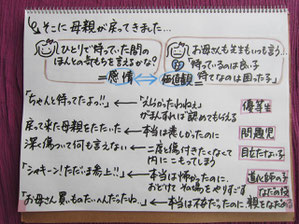 そこに母親が戻ってきました…
ひとりで待っていた間の
ほんとの気もちを言えるかな？
＝感情
お母さんも先生もいっも言う…
「待っているのは良い子
待てなのは困った子」
＝価値観
「ちゃんと待ってたよっ!!」
えらかったわねぇ
がまんすれば認めてもらえる
優等生
戻って来た母親をたたいた
本当は長しかったのに
問題児
深く傷ついて何も言えない
二度と傷付きたくなくて
内にこもってしまう
目立たない子
「シャキーン！ただいま参上!!」
本当は怖かったのに、
おどけてその場をやりすごす
道化師の子
「お母さん買ものたいへんだったね…」
本当は不安だったのに
親をなだめる
なだめ役